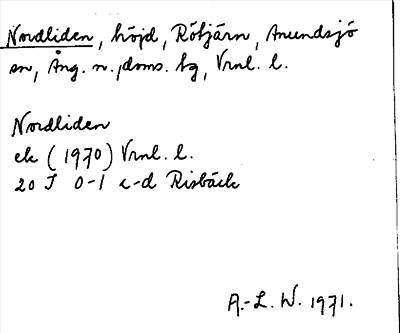 Nordliden, höjd, Rötjärn, Anundsjö
sn, Ång. n. doms. tg, Vrnl. l.
Nordliden
ek (1970) Vrnl. l.
20 J 0-1 c-d Risbäck
A.-L. W. 1971.